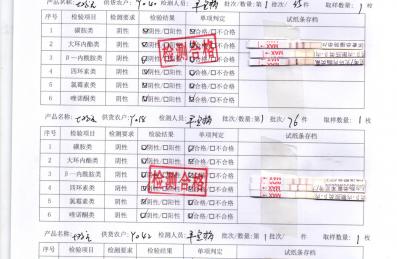 产品名称: 供货农户: Y040 检测人员: 批次/数量: 第1批次/ 取样数量: 1 枚
序号 检验项目 检测要求 检验结果 单项判定 试纸条存档
1 磺胺类 阴性 ☑阴性/□阳性 ☑合格/□不合格
2 大环内酯类 阴性 ☑阴性/□阳性 ☑合格/□不合格
3 β－内酰胺类 阴性 ☑阴性/□阳性 ☑合格/□不合格
4 四环素类 阴性 ☑阴性/□阳性 ☑合格/□不合格
5 氯霉素类 阴性 ☑阴性/□阳性 ☑合格/□不合格
6 喹诺酮类 阴性 ☑阴性/□阳性 ☑合格/□不合格
检测合格
MAX MAX
产品名称: 供货农户: 检测人员: 批次/数量: 第1批次/76 枚 取样数量: 1 枚
序号 检验项目 检测要求 检验结果 单项判定 试纸条存档
1 磺胺类 阴性 ☑阴性/□阳性 ☑合格/□不合格
2 大环内酯类 阴性 ☑阴性/□阳性 ☑合格/□不合格
3 β－内酰胺类 阴性 ☑阴性/□阳性 ☑合格/□不合格
4 四环素类 阴性 ☑阴性/□阳性 ☑合格/□不合格
5 氯霉素类 阴性 ☑阴性/□阳性 ☑合格/□不合格
6 喹诺酮类 阴性 ☑阴性/□阳性 ☑合格/□不合格
检测合格
MAX MAX
产品名称: 供货农户: Y042 检测人员: 批次/数量: 第1批次/ 枚 取样数量: 1 枚
序号 检验项目 检测要求 检验结果 单项判定 试纸条存档